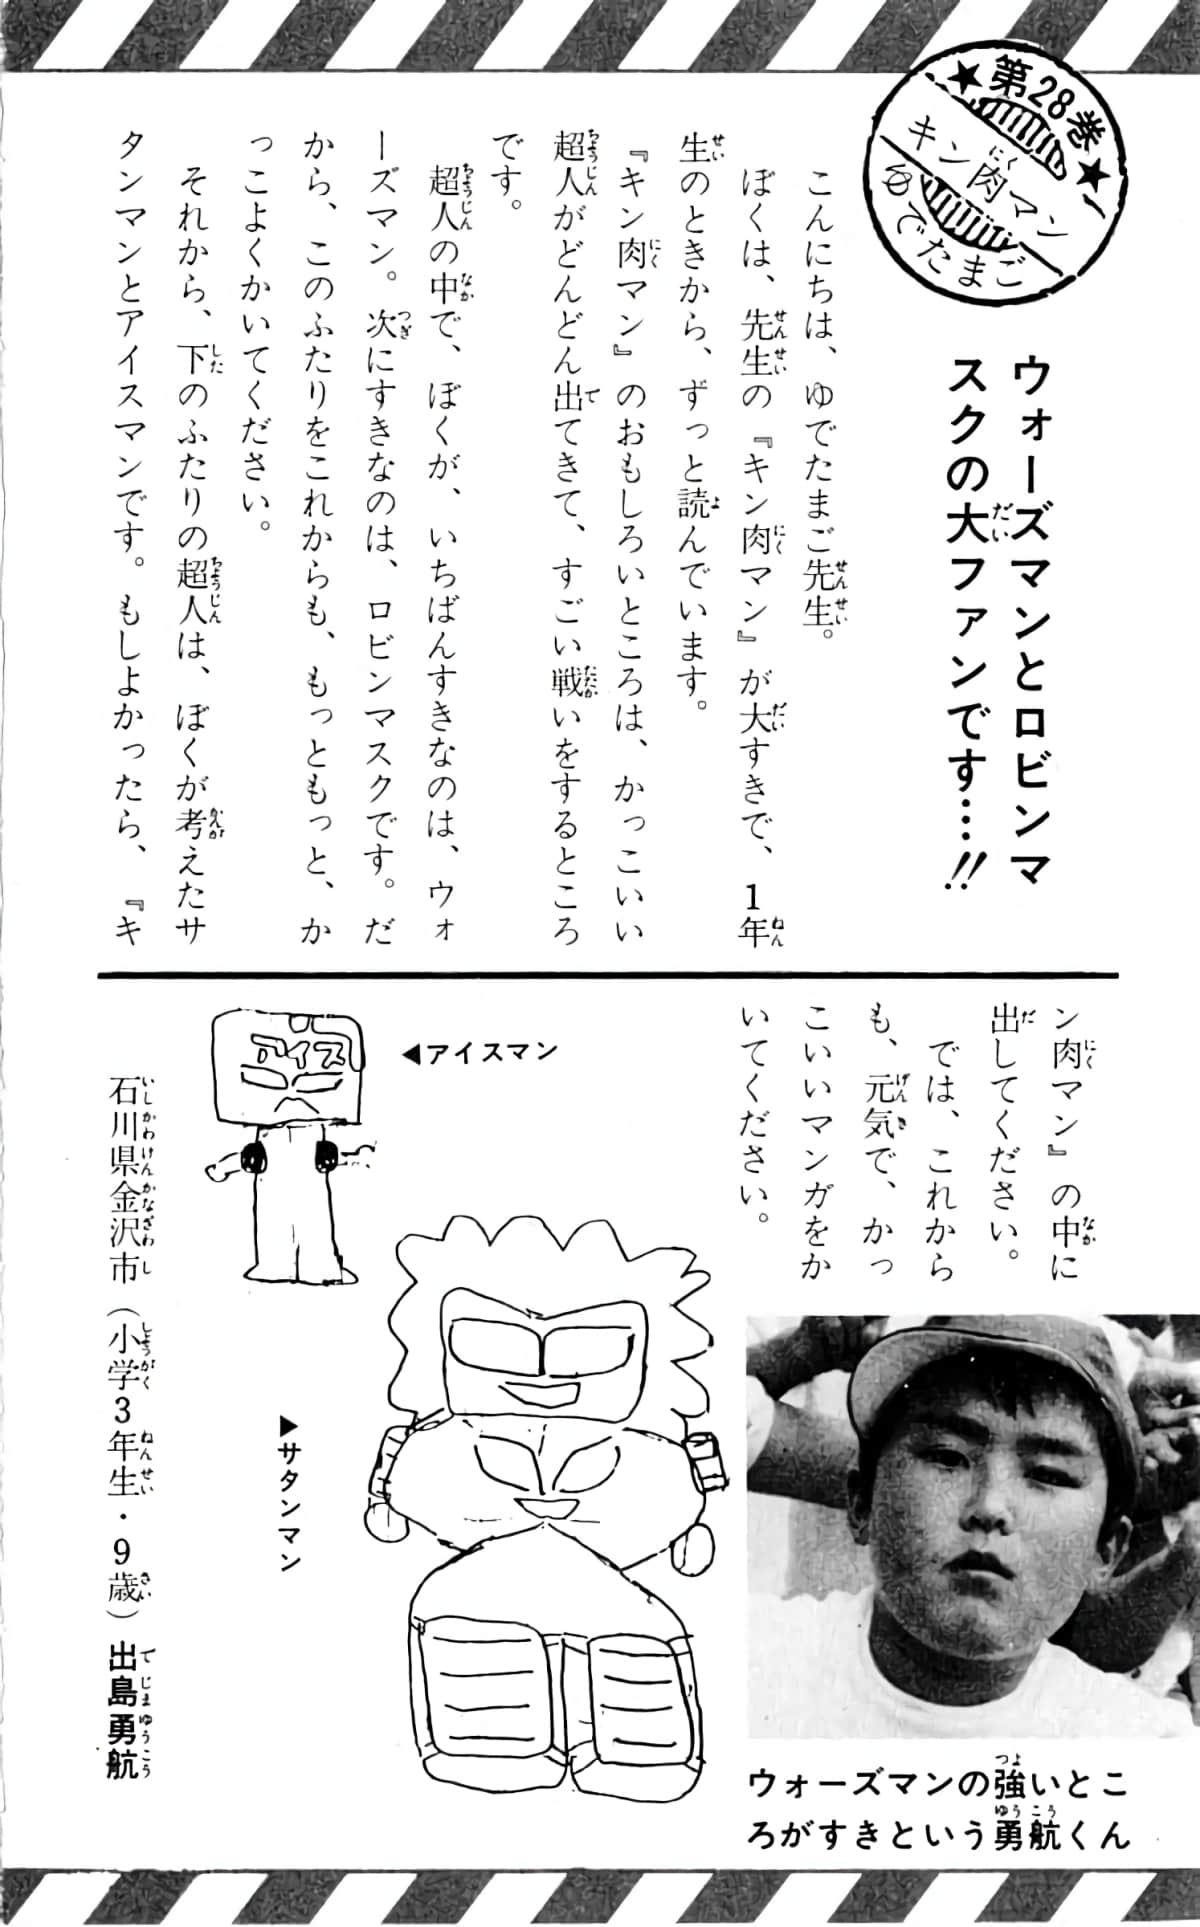 ★第28巻★
キン肉マン
ゆでたまご
ウォーズマンとロビンマ
スクの大ファンです…!!
こんにちは、ゆでたまご先生。
ぼくは、先生の『キン肉マン』が大すきで、1年
生のときから、ずっと読んでいます。
『キン肉マン』のおもしろいところは、かっこいい
超人がどんどん出てきて、すごい戦いをするところ
です。
超人の中で、ぼくが、いちばんすきなのは、ウォ
ーズマン。次にすきなのは、ロビンマスクです。だ
から、このふたりをこれからも、もっともっと、か
っこよくかいてください。
それから、下のふたりの超人は、ぼくが考えたサ
タンマンとアイスマンです。もしよかったら、『キ
ン肉マン』の中に
出してください。
では、これから
も、元気で、かっ
こいいマンガをか
いてください。
◀アイスマン
アイス
▶サタンマン
ウォーズマンの強いとこ
ろがすきという勇航くん
石川県金沢市(小学3年生・9歳)出島勇航